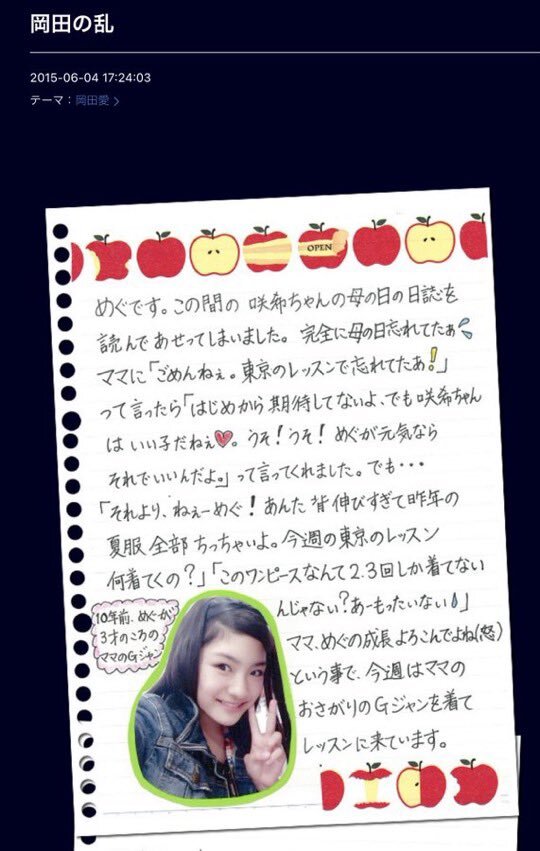 岡田の乱
2015-06-04 17:24:03
テーマ：岡田愛 >
OPEN
めぐです。この間の 咲希ちゃんの母の日の日誌を
読んであせってしまいました。完全に母の日忘れてたぁ
ママに「ごめんねぇ。東京のレッスンで忘れてたぁ！」
って言ったら「はじめから期待してないよ、でも咲希ちゃん
は いい子だねぇ💔。うそ！うそ！めぐが元気なら
それでいいんだよ。」って言ってくれました。でも・・・
「それより、ねぇーめぐ！あんた 背伸びすぎて昨年の
夏服 全部 ちっちゃいよ。今週の東京のレッスン
何着てくの？」「このワンピースなんて2.3回しか着てない
んじゃない？あーもったいない」
ママ、めぐの成長よろこんでよね(怒)
という事で、今週はママの
おさがりのGジャンを着て
レッスンに来ています。
10年前、めぐが
3才のころの
ママのGジャン